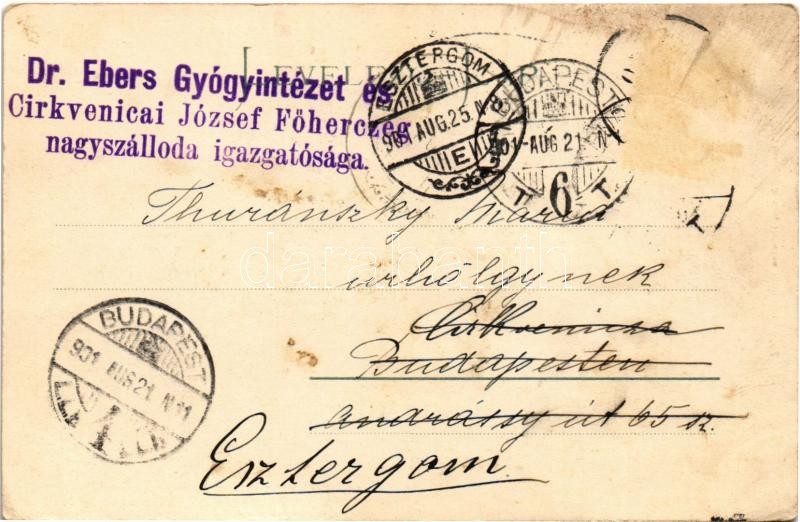 LEVELE
Dr. Ebers Gyógyintézet és
Cirkvenicai József Főherczeg
nagyszálloda igazgatósága.
ESZTERGOM
901 AUG. 25. N 8
E
BUDAPEST
901 AUG 21 N
T 6 T
T
Thuránszky Mária
úrhölgynek
Cirkvenicza
Budapesten
andrássy út 65 sz.
Esztergom
BUDAPEST
901 AUG 21 N 11
darabanth